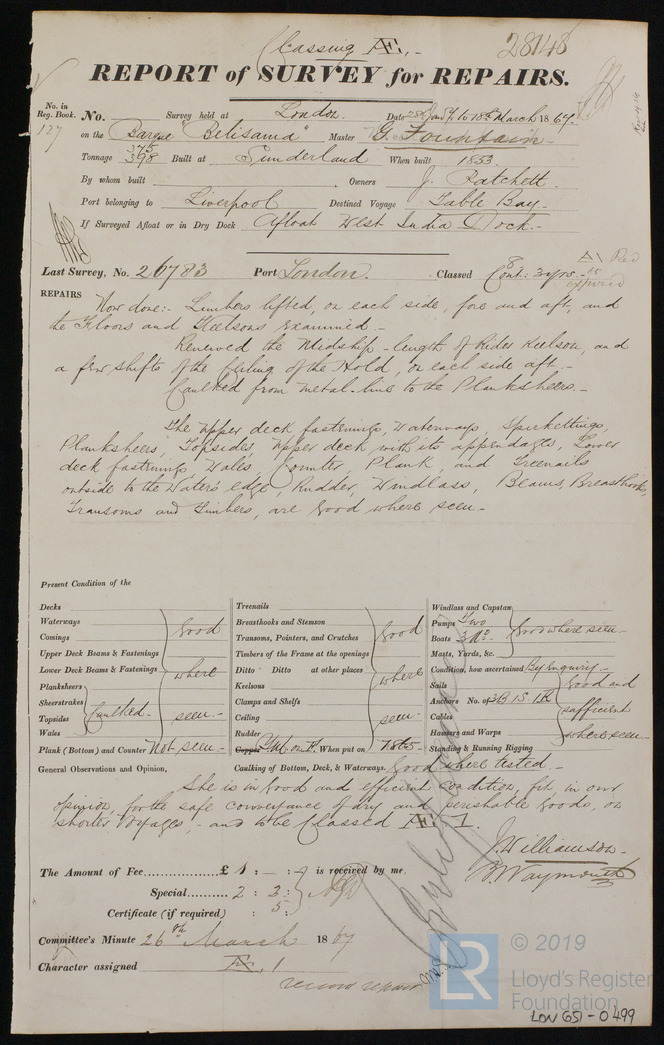 Classing Æ.
28148
REPORT of SURVEY for REPAIRS.
No. in Reg. Book. No. Survey held at London Date 28th Jany. to 18th March 1867
127 on the Barque "Belisama" Master G. Fountain
Tonnage 375 398 Built at Sunderland When built 1853
By whom built Owners J. Patchett
Port belonging to Liverpool Destined Voyage Table Bay
If Surveyed Afloat or in Dry Dock Afloat West India Dock
A Red
Last Survey, No. 26783 Port London. Classed Cont: 3 yrs expired
REPAIRS Now done:- Limbers lifted, on each side, fore and aft, and
the Floors and Keelsons examined -
Renewed the Midship-length of Rider Keelson, and
a few shifts of the Ceiling of the Hold, on each side aft.
Caulked from metal-line to the Planksheers -
The Upper deck fastenings, Waterways, Spirkettings,
Planksheers, Topsides, Upper deck with its appendages, Lower
deck fastenings, Wales, Counter, Plank, and Treenails
outside to the Water's edge, Rudder, Windlass, Beams, Breasthooks,
Transoms and Timbers, are good where seen -
Present Condition of the
Decks
Waterways
Comings
Upper Deck Beams & Fastenings
Lower Deck Beams & Fastenings
good where seen -
Planksheers
Sheerstrakes
Topsides
Wales
Caulked -
Plank (Bottom) and Counter Not seen -
Treenails
Breasthooks and Stemson
Transoms, Pointers, and Crutches
Timbers of the Frame at the openings
Ditto Ditto at other places
Keelsons
Clamps and Shelfs
Ceiling
Rudder
good where seen -
Copper Y.M. on F. When put on 1865
Windlass and Capstan
Pumps Two
Boats 3 No.
Masts, Yards, &c.
Good where seen -
Condition, how ascertained By Enquiry -
Sails
Anchors No. of 3B 1S 1K
Cables
Hawsers and Warps
Standing & Running Rigging
Good and sufficient where seen -
General Observations and Opinion, Caulking of Bottom, Deck, & Waterways. Good where tested -
She is in good and efficient condition, fit, in our
opinion, for the safe conveyance of dry and perishable goods, on
shorter voyages, - and to be Classed Æ 1.
J. Williamson
B. Waymouth
The Amount of Fee £ 1 : - : is received by me
Special 2 : 2 :
Certificate (if required) : 5 :
Committee's Minute 26th March 1867
Character assigned Æ. 1
record repairs
© 2019
LR Lloyd's Register
Foundation
LON 651-0499